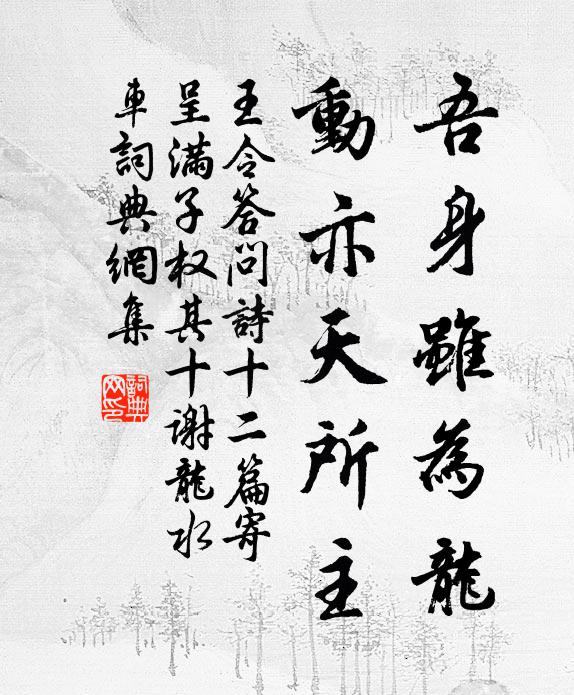 吾身雖為龍
動亦天所主
王令答問詩十二篇寄
呈滿子权其十谢龍水
車詞典網集
詞典
网印